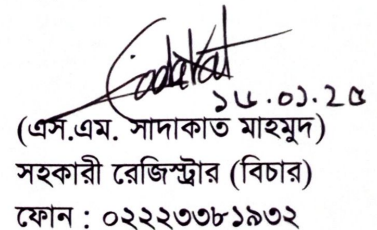 Sadakat
১৫.০১.২৫
(এস.এম. সাদাকাত মাহমুদ)
সহকারী রেজিস্ট্রার (বিচার)
ফোন : ০২২২৩৩৮১৯৩২